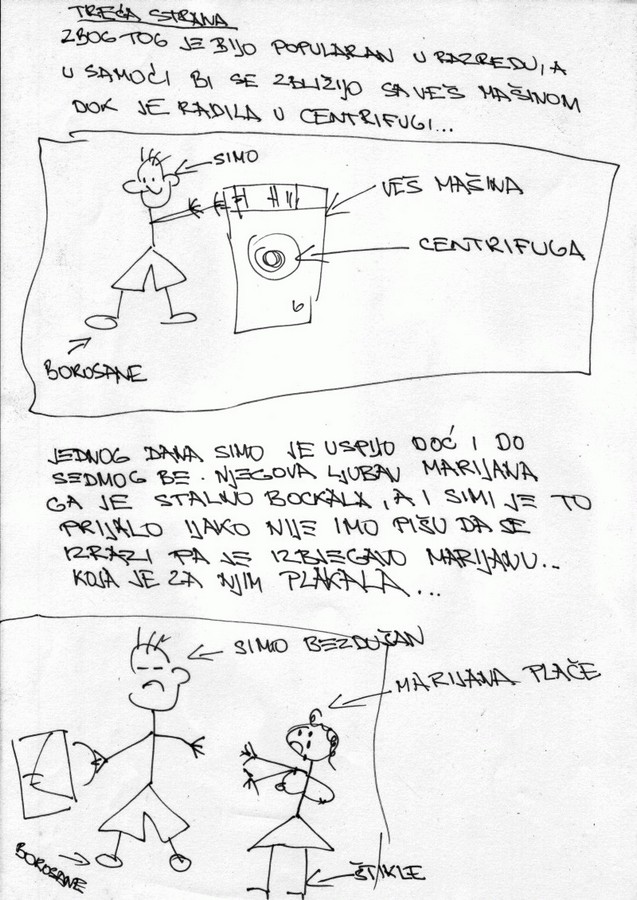 TREĆA STRANA
ZBOG TOG JE BIJO POPULARAN U RAZREDU, A
U SAMOĆI BI SE ZBLIŽIJO SA VEŠ MAŠINOM
DOK JE RADILA U CENTRIFUGI...
SIMO
VEŠ MAŠINA
CENTRIFUGA
6
BOROSANE
JEDNOG DANA SIMO JE USPIJO DOĆ I DO
SEDMOG BE. NJEGOVA LJUBAV MARIJANA
GA JE STALNO BOCKALA, A I SIMI JE TO
PRIJALO IJAKO NIJE IMO PIŠU DA SE
IZRAZI PA JE IZBJEGAVO MARIJANU..
KOJA JE ZA NJIM PLAKALA...
SIMO BEZDUŠAN
MARIJANA PLAČE
BOROSANE
ŠTIKLE